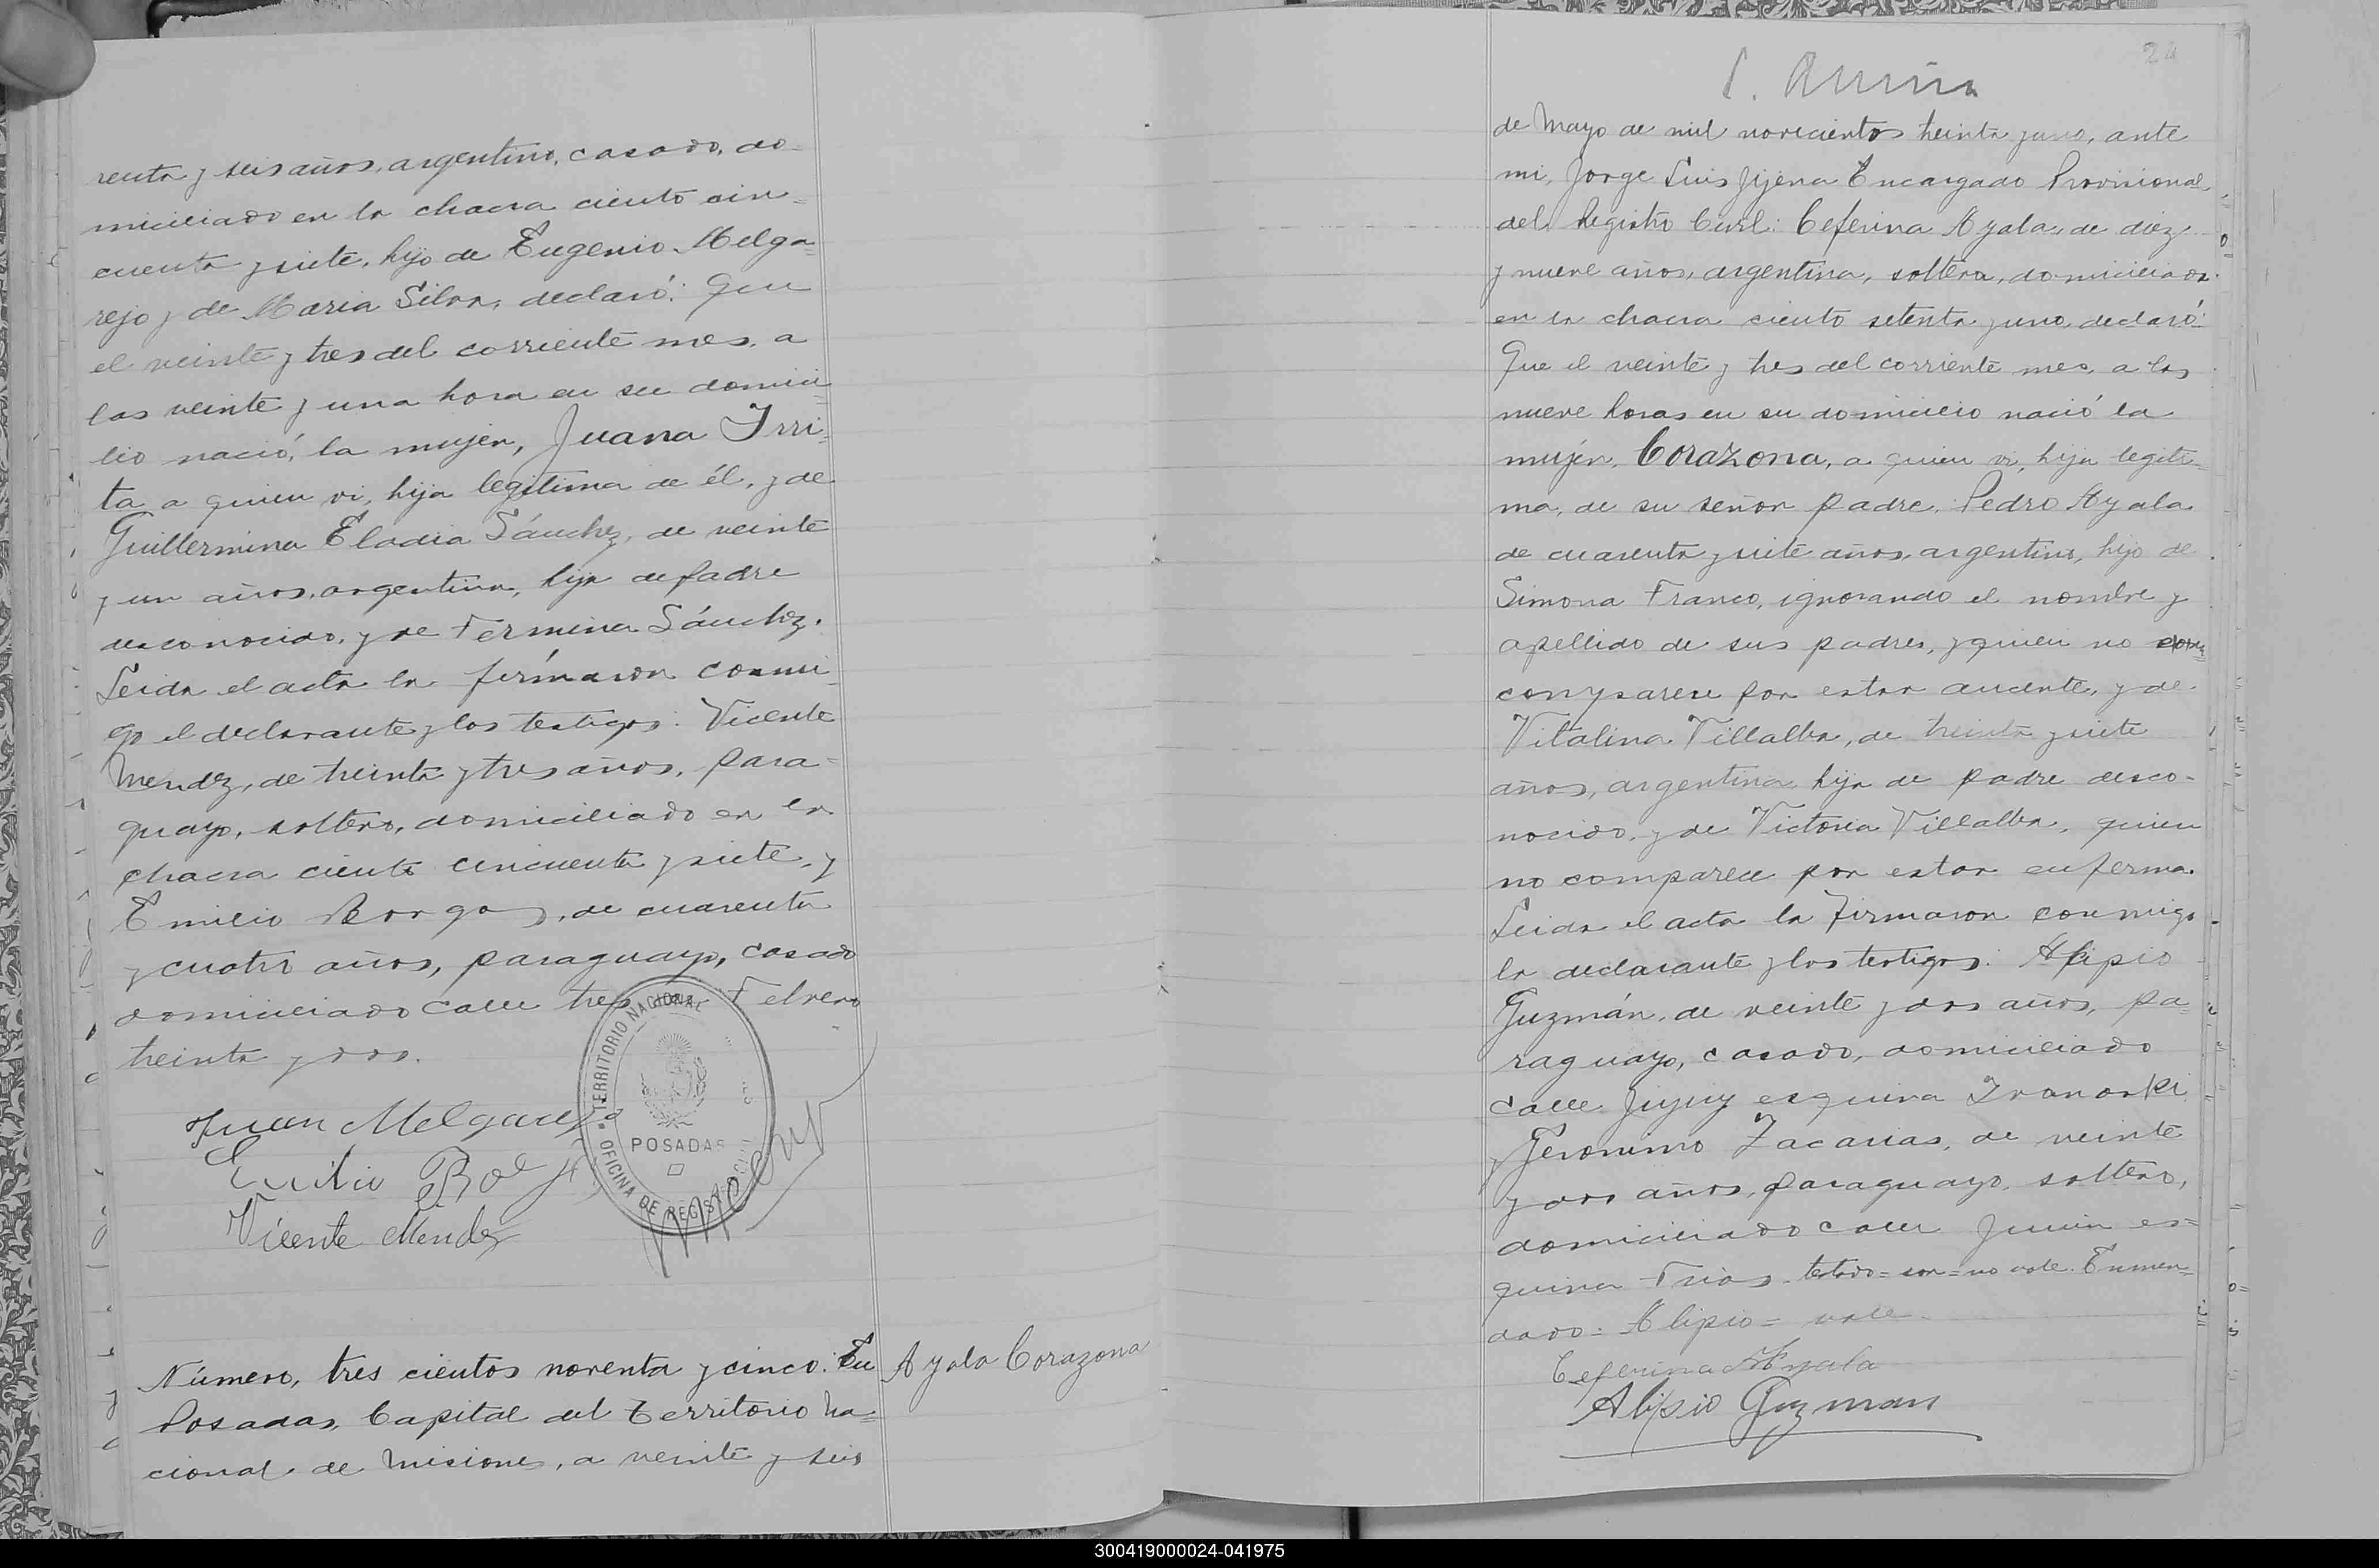 renta y seis años, argentino, casado, do-
miciliado en la chacra ciento cin-
cuenta y siete, hijo de Eugenio Melga-
rejo y de Maria Silva, declaró: Que
el veinte y tres del corriente mes, a
las veinte y una hora en su domici-
lio nació, la mujer, Juana Irri-
ta a quien vi, hija legítima de él, y de
Guillermina Eladia Sánchez, de veinte
y un años, argentina, hija de padre
desconocido, y de Fermina Sánchez.
Leida el acta la firmaron conmi-
go el declarante y los testigos: Vicente
Mendez, de treinta y tres años, para-
guayo, soltero, domiciliado en la
chacra ciento cincuenta y siete, y
Emilio Borgos, de cuarenta
y cuatro años, paraguayo, casado
domiciliado calle tres de Febrero
treinta y dos.
Juan Melgarejo
Emilio
Vicente Mendez
TERRITORIO NACIONAL
POSADAS
OFICINA DE REGISTRO CIVIL
Número, tres cientos noventa y cinco: En
Posadas, Capital del Territorio Na-
cional de Misiones, a veinte y seis
Ayala Corazona
24
de Mayo de mil novecientos treinta y uno, ante
mi, Jorge Luis Jijena Encargado Provisional,
del Registro Civil: Ceferina Ayala, de diez
y nueve años, argentina, soltera, domiciliada
en la chacra ciento setenta y uno, declaró:
Que el veinte y tres del corriente mes, a las
nueve horas en su domicilio nació la
mujer, Corazona, a quien vi, hija legiti-
ma, de su señor padre, Pedro Ayala
de cuarenta y siete años, argentino, hijo de
Simona Franco, ignorando el nombre y
apellido de sus padres, y quien no
comparece por estar ausente, y de
Vitalina Villalba, de treinta y siete
años, argentina, hija de padre desco-
nocido, y de Victoria Villalba, quien
no comparece por estar enferma.
Leida el acta la firmaron conmigo
la declarante y los testigos: Alipio
Guzmán, de veinte y dos años, pa-
raguayo, casado, domiciliado
calle Jujuy esquina Ivanoski
y Jeronimo Zacarias, de veinte
y dos años, paraguayo, soltero,
domiciliado calle Junin es-
quina Frias. testado=som=no vale. Enmen-
dado= Alipio= vale.
Ceferina Ayala
Alipio Guzman
300419000024-041975